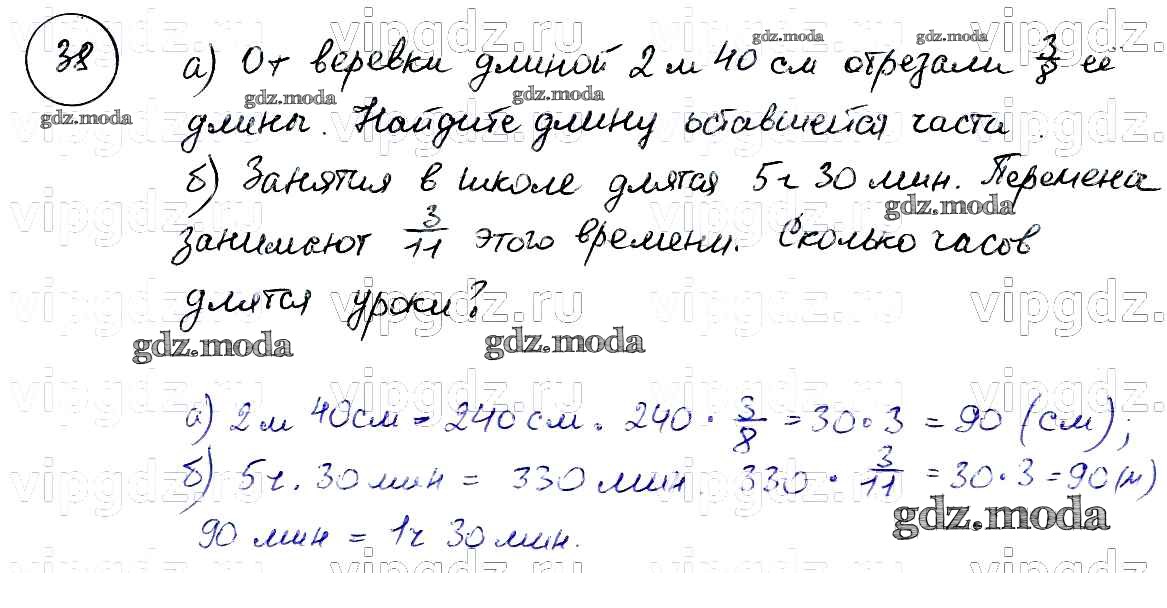 38
а) От веревки длиной 2 м 40 см отрезали 3/8 её
длины. Найдите длину оставшейся части.
б) Занятия в школе длятся 5 ч 30 мин. Перемена
занимают 3/11 этого времени. Сколько часов
длятся уроки?
а) 2 м 40 см = 240 см. 240 · 3/8 = 30 · 3 = 90 (см);
б) 5 ч. 30 мин = 330 мин. 330 · 3/11 = 30 · 3 = 90 (м)
90 мин = 1 ч 30 мин.
gdz.moda
vipgdz.ru